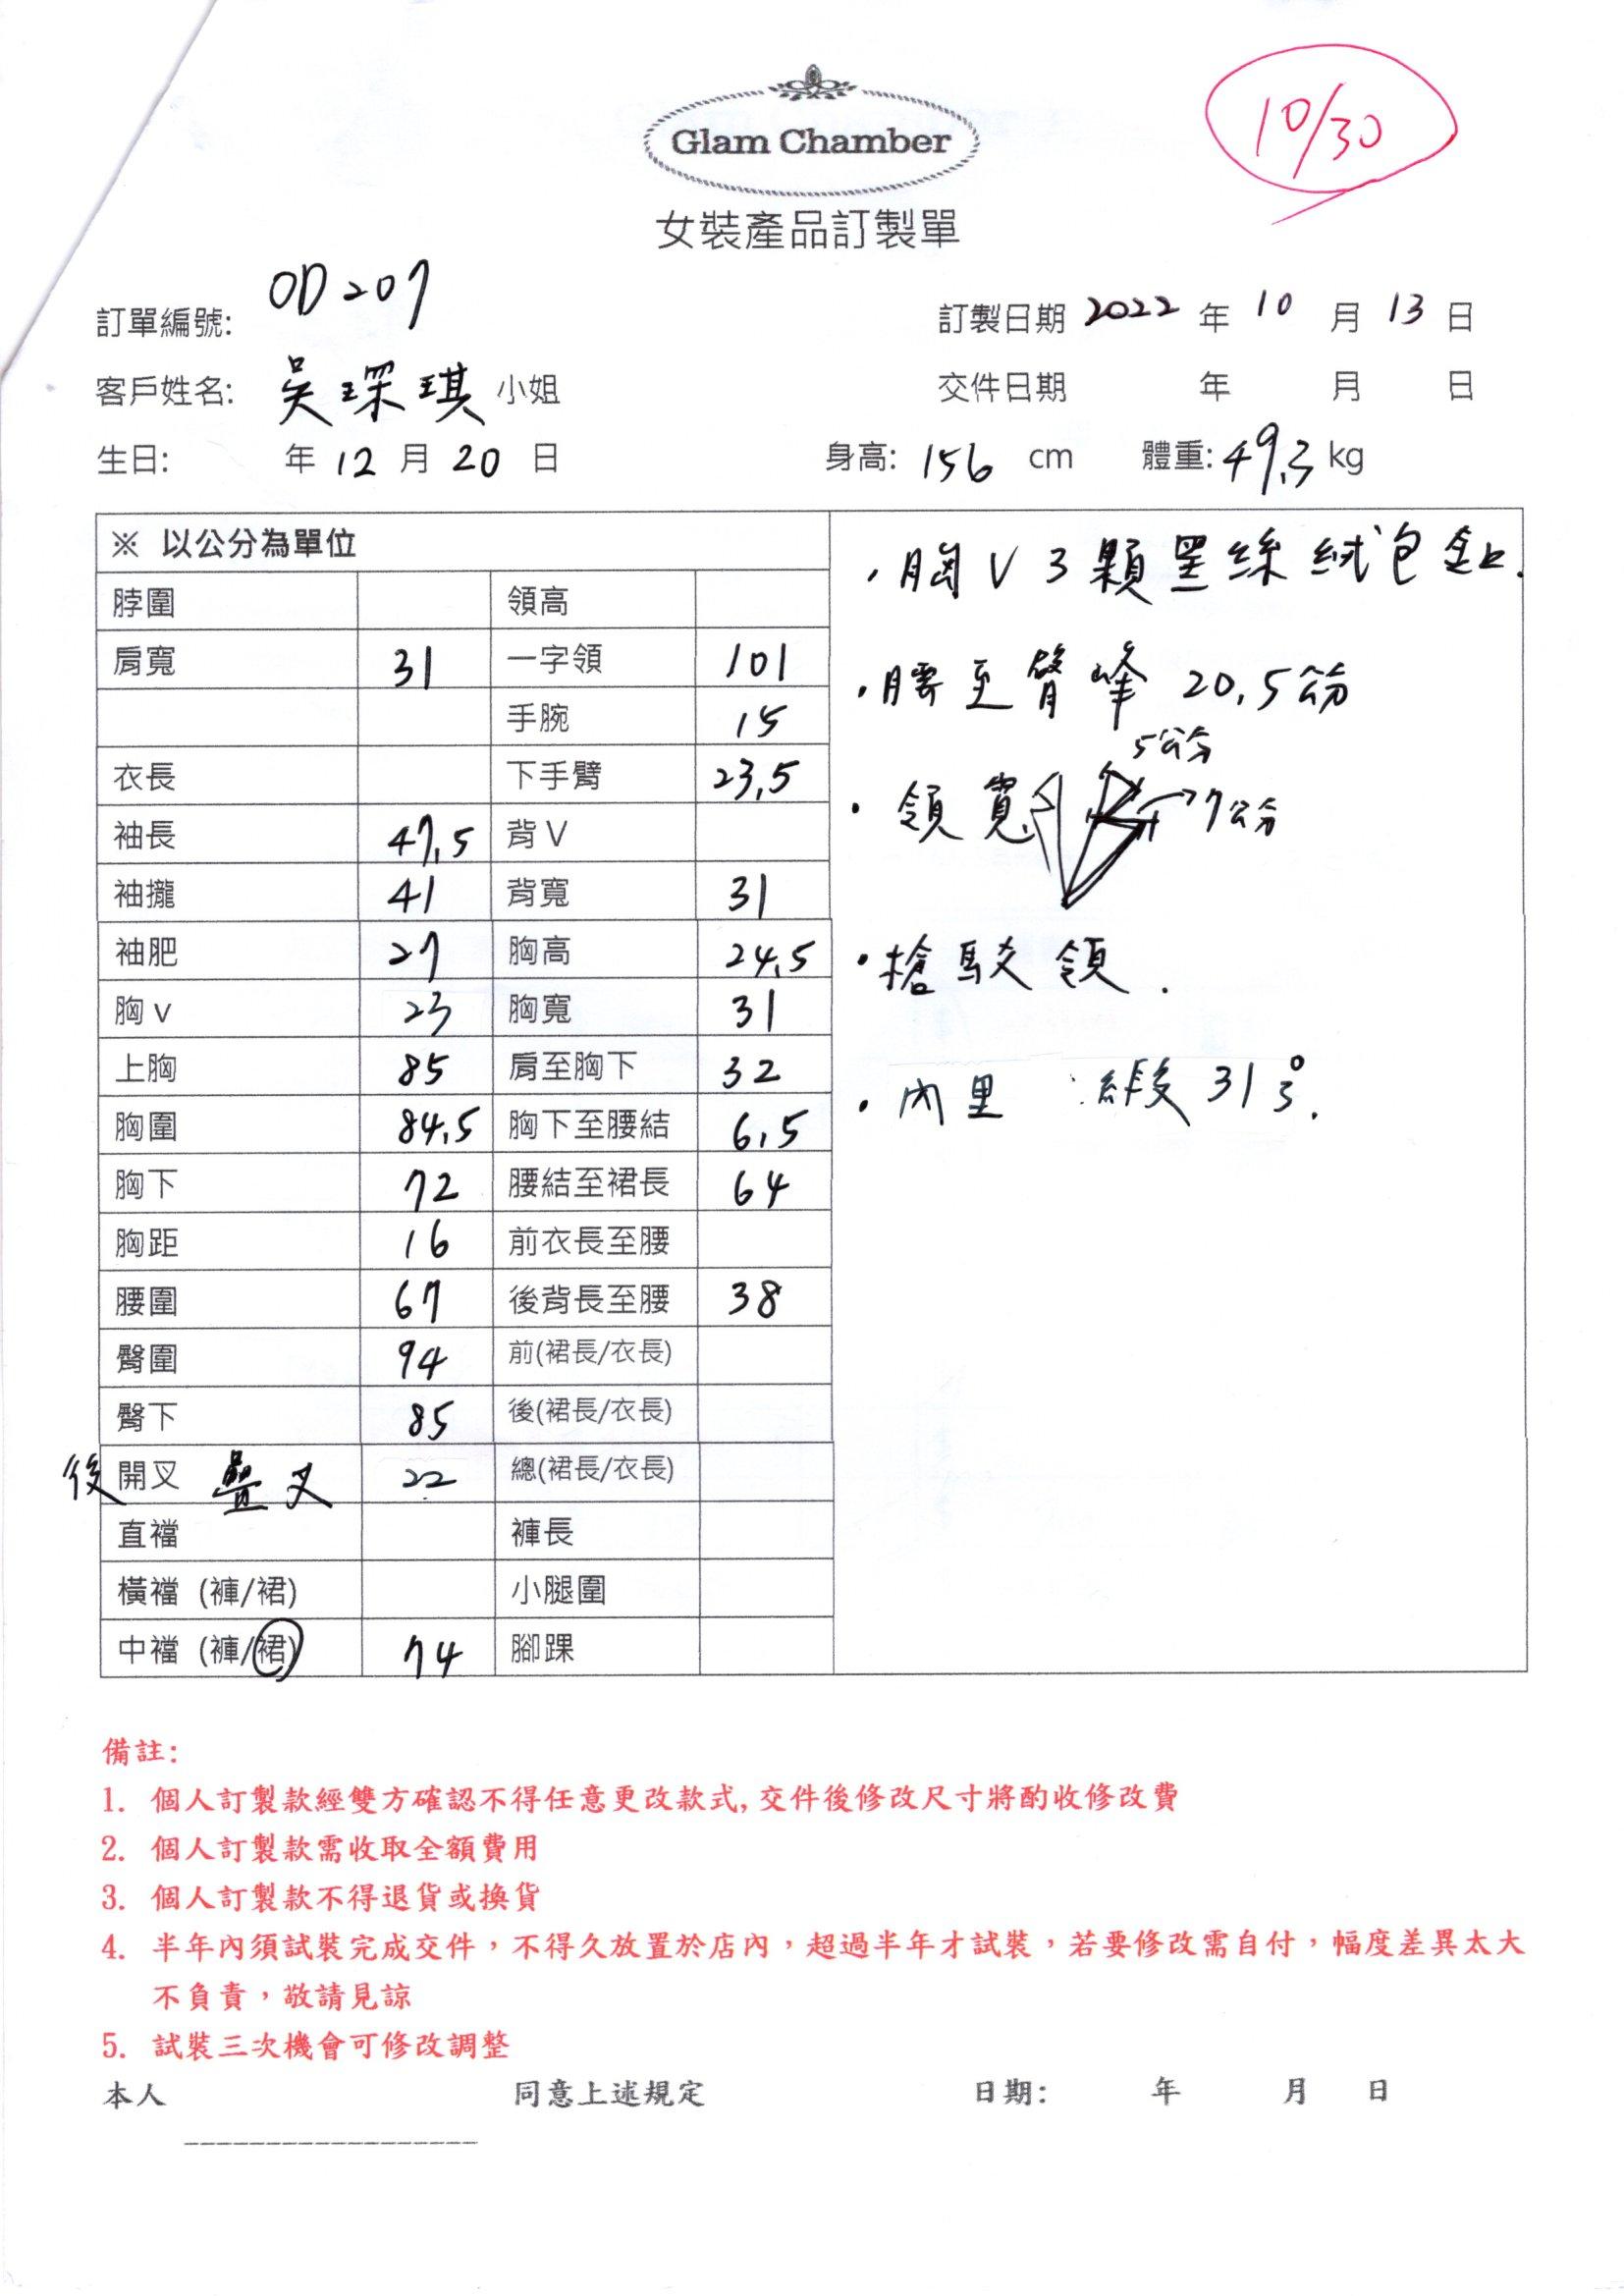 Glam Chamber
10/30
女裝產品訂製單
訂單編號: OD207
訂製日期 2022 年 10 月 13 日
客戶姓名: 吳琛琪 小姐
交件日期 年 月 日
生日: 年 12 月 20 日
身高: 156 cm 體重: 49.3 kg
※ 以公分為單位
脖圍 領高
肩寬 31 一字領 101
手腕 15
衣長 下手臂 23.5
袖長 47.5 背V
袖攏 41 背寬 31
袖肥 27 胸高 24.5
胸v 23 胸寬 31
上胸 85 肩至胸下 32
胸圍 84.5 胸下至腰結 6.5
胸下 72 腰結至裙長 64
胸距 16 前衣長至腰
腰圍 67 後背長至腰 38
臀圍 94 前(裙長/衣長)
臀下 85 後(裙長/衣長)
後 開叉 疊叉 22 總(裙長/衣長)
直襠 褲長
橫襠 (褲/裙) 小腿圍
中襠 (褲/裙) 74 腳踝
・胸V 3顆黑絲絨包釦.
・腰至臀峰 20.5公分
5公分
・領寬 7公分
・槍駁領.
・內里 : 緞 31
備註:
1. 個人訂製款經雙方確認不得任意更改款式, 交件後修改尺寸將酌收修改費
2. 個人訂製款需收取全額費用
3. 個人訂製款不得退貨或換貨
4. 半年內須試裝完成交件，不得久放置於店內，超過半年才試裝，若要修改需自付，幅度差異太大
不負責，敬請見諒
5. 試裝三次機會可修改調整
本人 同意上述規定 日期: 年 月 日